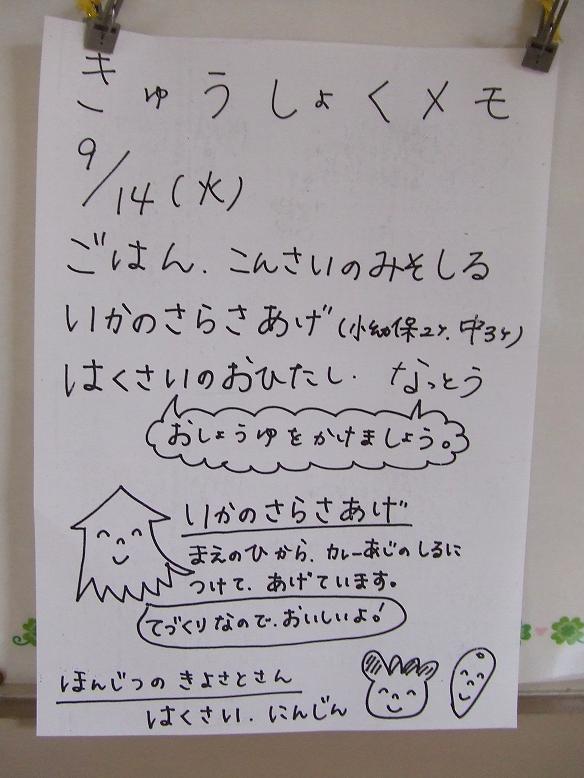 きゅうしょくメモ
9/14(火)
ごはん、こんさいのみそしる
いかのさらさあげ(小幼保2ケ、中3ケ)
はくさいのおひたし、なっとう
おしょうゆをかけましょう。
いかのさらさあげ
まえのひから、カレーあじのしるに
つけて、あげています。
てづくりなので、おいしいよ!
ほんじつのきよさとさん
はくさい、にんじん